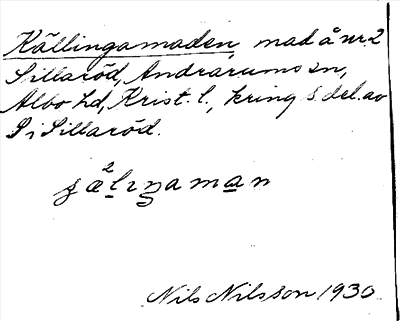 Källingamaden, mad å nr 2
Sillaröd, Andrarums sn,
Albo hd, Krist. l., kring s. del. av
S i Sillaröd.
2
ʂæl̲ıŋam a̲n
Nils Nilsson 1930